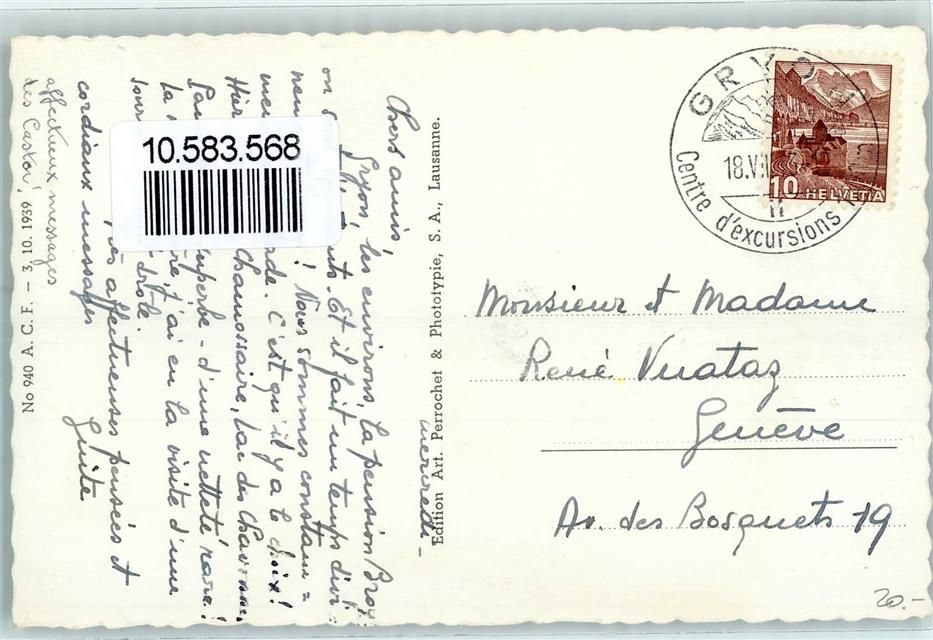 Chers amis
Gryon, les environs, la pension Broy
on s'y Et il fait un temps divi-
! Nous sommes constam=
C'est qu'il y a le choix!
Hier Chaussaire, Lac des Chavonnes.
superbe - d'une netteté rare!
La j'ai eu la visite d'une
drôle.
affectueuses pensées et
cordiaux messages
Ginite
affectueux messages
des Castor!
10.583.568
No 940 A. C. F. – 3. 10. 1939
Edition Art. Perrochet & Phototypie, S. A., Lausanne.
GRYON
18.VII
Centre d'excursions
10 HELVETIA
Monsieur et Madame
René Vuataz
Genève
Av. des Bosquets 19
20.-